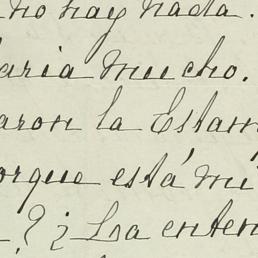 no hay nada.
aria mucho.
aron la Estam
orque está mi
? ¿La enten